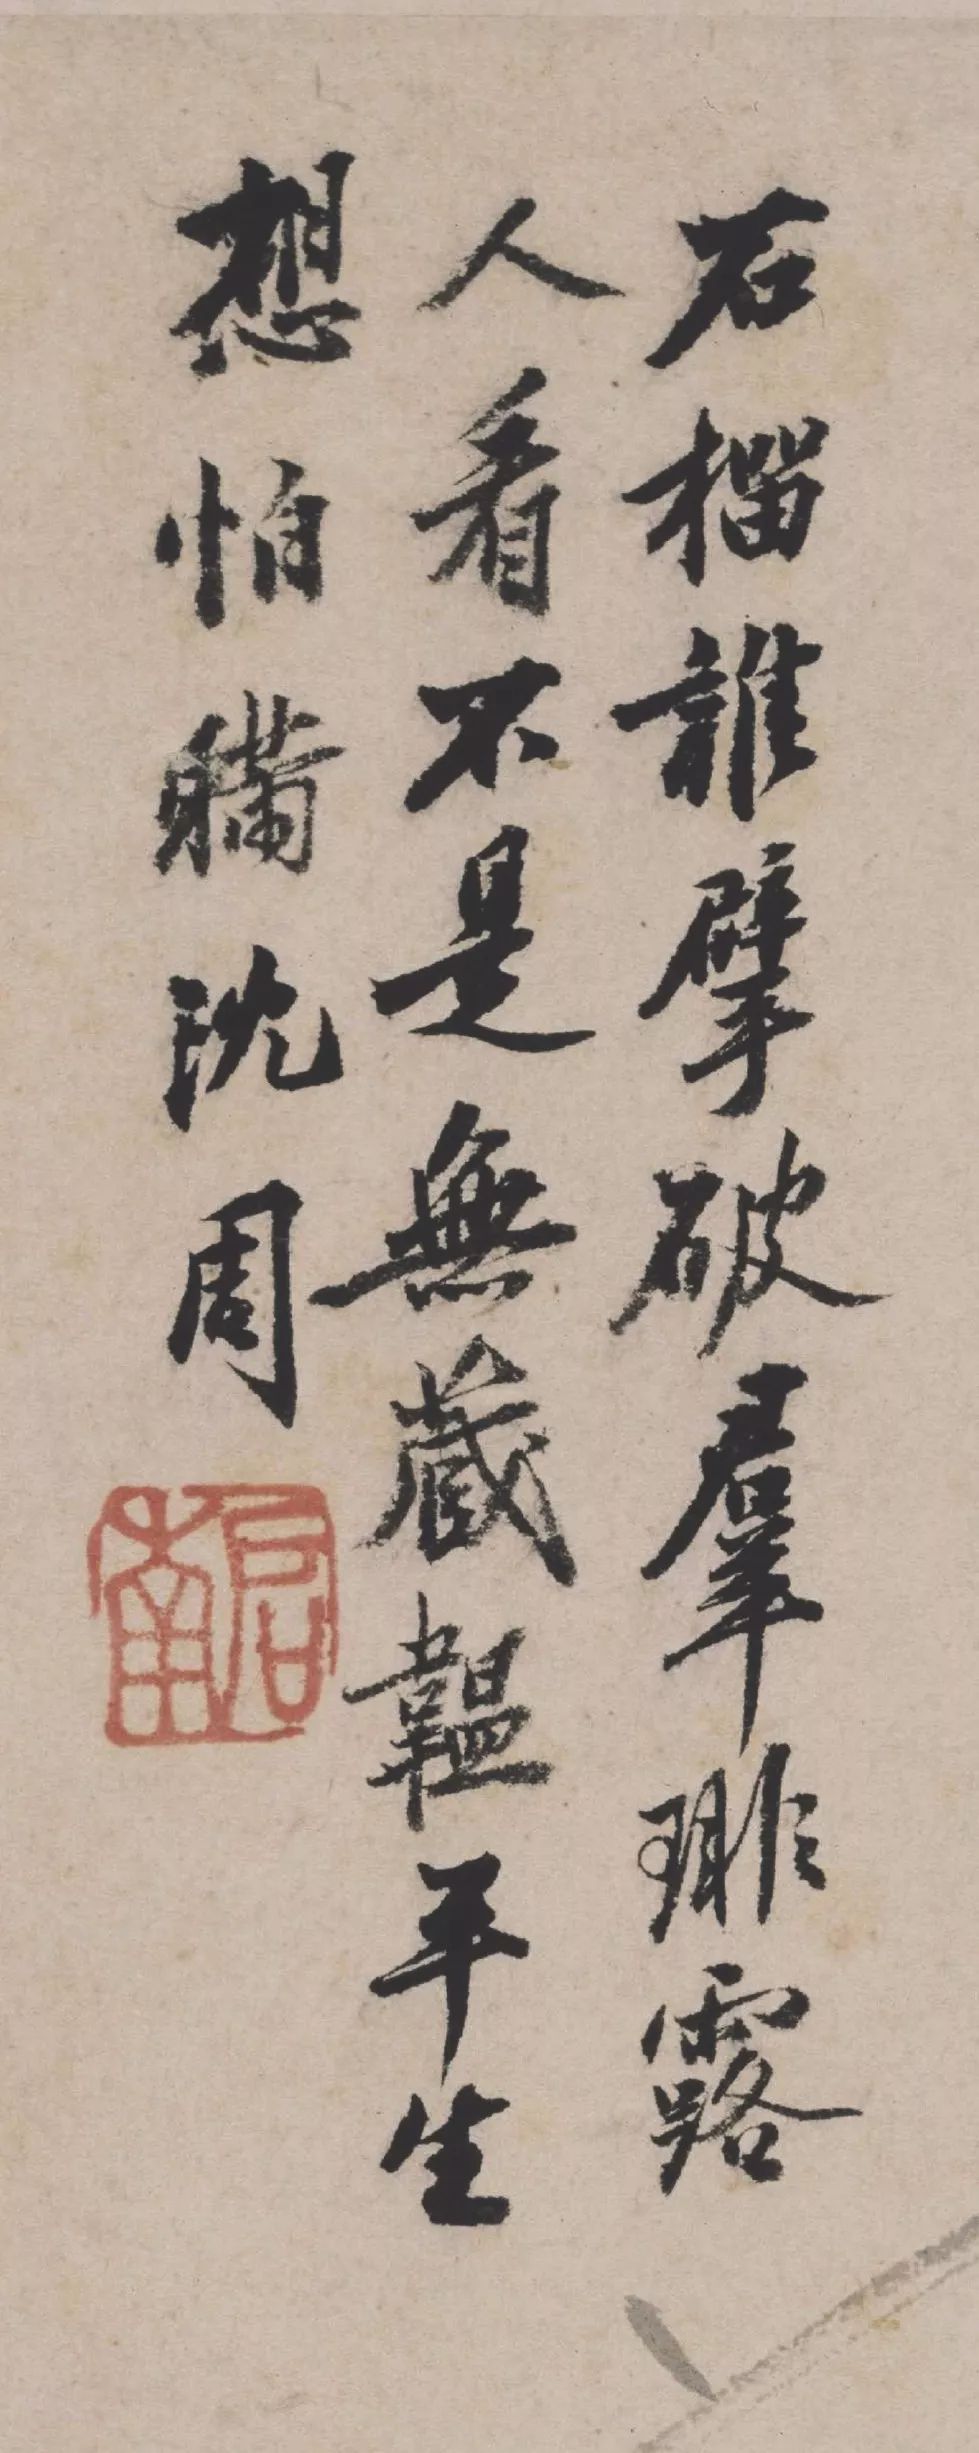 石榴誰擘破羣琲露
人看不是無藏韞平生
想怕瞞沈周
啓南